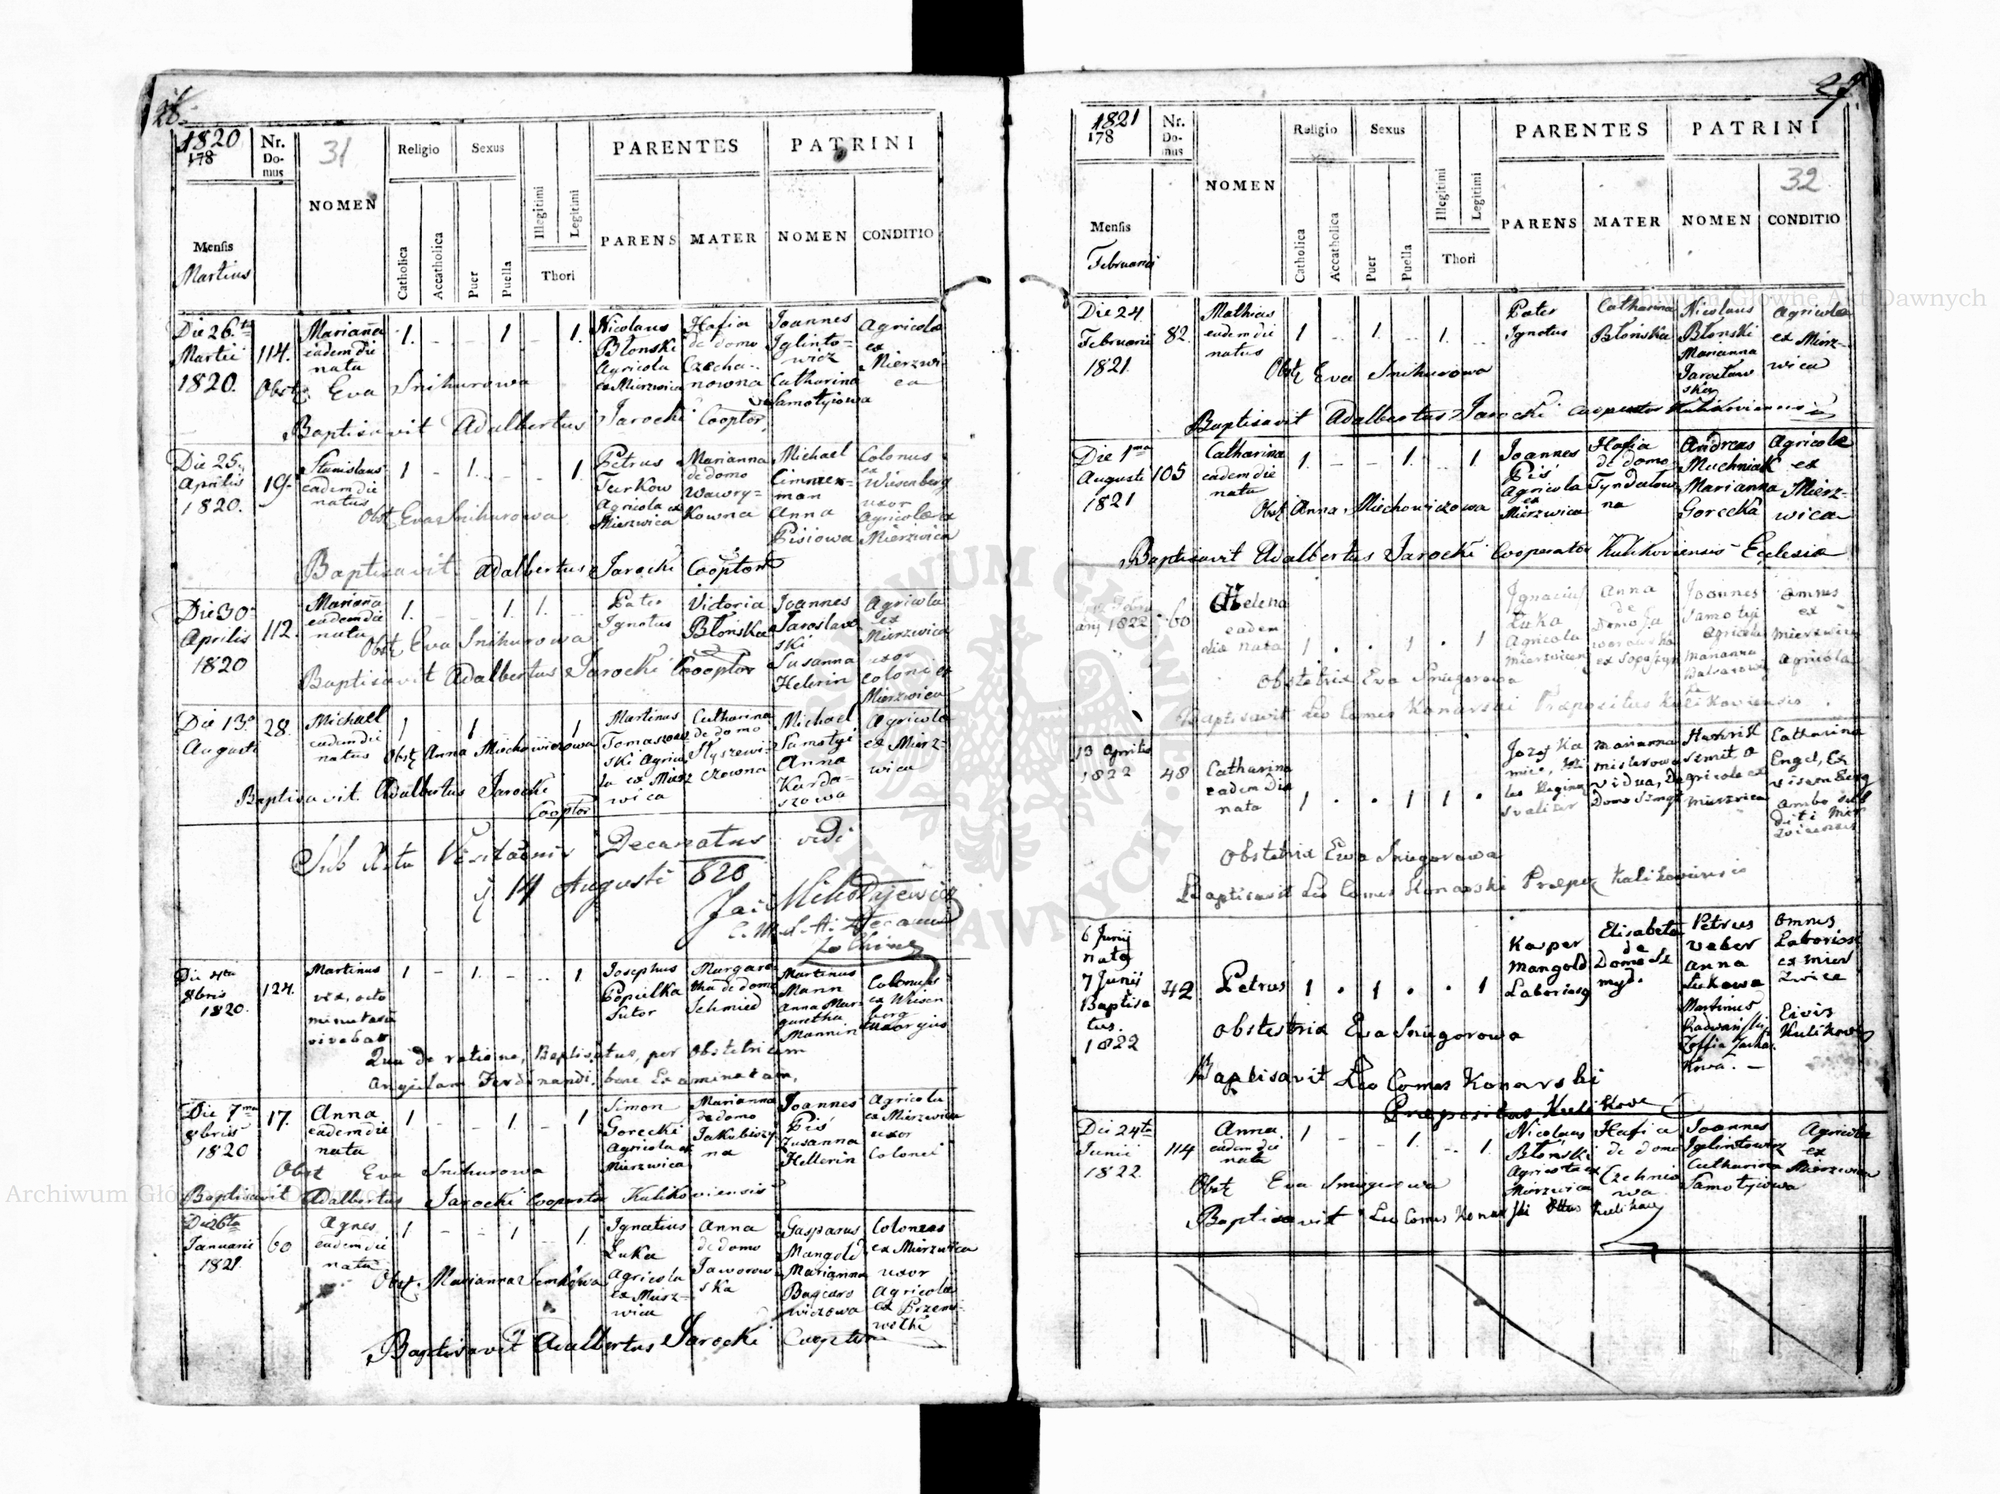 26.
1820
178
Nr. Domus
31
NOMEN
Religio
Sexus
Catholica
Accatholica
Puer
Puella
Illegitimi
Legitimi
Thori
PARENTES
PATRINI
PARENS
MATER
NOMEN
CONDITIO
Mensis
Martius
Die 26ta Martii 1820.
114.
Mariana eadem die nata
1. 1 1.
Nicolaus Błonski Agricola ex Mierzwica
Hafia de domo Czechanowna
Joannes Iglintowicz Catharina Samotyiowa
Agricola ex Mierzwica
Obst. Eva Snihurowa
Baptisavit Adalbertus Jarocki Cooptor,
Die 25. Aprilis 1820.
19.
Stanislaus eadem die natus
1 - 1. 1
Petrus Turkow Agricola ex Mierzwica
Marianna de domo Wawrykowna
Michael Cimmerman Anna Pisiowa
Colonus ex Wiesenberg uxor Agricolae ex Mierzwica
Obst. Eva Snihurowa
Baptisavit Adalbertus Jarocki Cooptor
Die 30 Aprilis 1820
112.
Mariana eadem die nata
1. 1 1.
Pater Ignotus
Victoria Błońska
Joannes Jaroslawski Susanna Helerin
Agricola ex Mierzwica uxor coloni ex Mierzwica
Obst. Eva Snihurowa
Baptisavit Adalbertus Jarocki Cooptor
Die 13a Augusti
28.
Michael eadem die natus
1 1 1
Martinus Tomaszewski Agricola ex Mierzwica
Catharina de domo Słyszewiczowna
Michael Samotyi Anna Kardaszowa
Agricola ex Mierzwica
Obst. Anna Miechowiczowa
Baptisavit Adalbertus Jarocki
Cooptor
Sub Actu Visitationis Decanatus vidi
14 Augusti 820
Die 4ta 8bris 1820.
124.
Martinus vix octo minutas vivebat
1 - 1. - 1
Josephus Popiilka Sutor
Margaretha de domo Schmied
Martinus Mann Anna Margaretha Mannin
Colonus ex Wiesenberg uxor ejus
Qua de ratione, Baptisatus, per obstetricem
Angelam Ferdinandi, bene Examinatam,
Die 7ma 8bris 1820
17.
Anna eadem die nata
1 - - 1 - 1
Simon Gorecki Agricola ex Mierzwica
Marianna de domo Jakubiszyna
Joannes Piś Zusanna Hellerin
Agricola ex Mierzwica uxor Colonei
Obst Eva Snihurowa
Baptisavit Adalbertus Jarocki Cooperator Kulikoviensis
Die 26ta Januarii 1821
60
Agnes eadem die nata
1 - - 1 - 1.
Ignatius Łuka Agricola ex Mierzwica
Anna de domo Jaworowska
Gasparus Mangold Marianna
Coloneus ex Mierzwica uxor Agricolae ex
Obst. Marianna Semkowa
Baptisavit Adalbertus Jarocki Cooptor
27.
1821
178
Nr. Domus
NOMEN
Religio
Sexus
Catholica
Accatholica
Puer
Puella
Illegitimi
Legitimi
Thori
PARENTES
PATRINI
32
PARENS
MATER
NOMEN
CONDITIO
Mensis
Februarii
Die 24 Februarii 1821.
82.
Mathias eadem die natus
1 - 1 - 1. -
Pater Ignotus
Catharina Błońska
Nicolaus Błonski Marianna Jarosławska
Agricola ex Mierzwica
Obst. Eva Snihurowa
Baptisavit Adalbertus Jarocki Cooperator Kulikoviensis
Die 1ma Augusti 1821
105
Catharina eadem die nata
1. - - 1. - 1
Joannes Piś Agricola ex Mierzwica
Hafia de domo Tyndalowna
Andreas Muchniak Marianna Gorecka
Agricola ex Mierzwica
Obst Anna Miechowiczowa
Baptisavit Adalbertus Jarocki Cooperator Kulikoviensis Ecclesia
1822
60
Helena eadem die nata
1 . . 1 . 1
Ignacius Łuka Agricola
Anna de Domo
Joannes Samotyi Agricola Marianna
omnes ex Mierzwica Agricola
Obstetrix Eva Sniegorowa
Baptisavit Leo Comes Konarski Praepositus Kulikoviensis
13 Aprilis 1822
48
Catharina eadem die nata
1 . . 1 1 .
Jozef
Marianna vidua, De Domo
Agricola ex Mierzwica
Catharina Engel, Ex ambo
Obstetrix Ewa Sniegorowa
Baptisavit Leo Comes Konarski Praep. Kulikoviensis
6 Junii nata 7 Junii Baptisatus. 1822
42
Petrus
1 . 1 . . 1
Kasper Mangold Laboriosy
Elisabeta de Domo Szmyd.
Petrus Veber Anna Łukowa Martinus Radwański, Zoffia
omnes Laboriosi ex Mierzwice Civis Kulikow
Obstetrix Eva Sniegorowa
Baptisavit Leo Comes Konarski
Praepositus Kulikow
Die 24ta Junii 1822.
114
Anna eadem die nata
1 - - 1 - 1.
Nicolaus Błonski Agricola ex Mierzwica
Hafia de domo Czehniowa
Joannes Iglintowicz Catharina Samotyiowa
Agricola ex Mierzwica
Obst Eva Sniegurowa
Baptisavit Leo Comes Konarski
Archiwum Główne Akt Dawnych
Archiwum Główne Akt Dawnych
ARCHIWUM GŁÓWNE AKT DAWNYCH